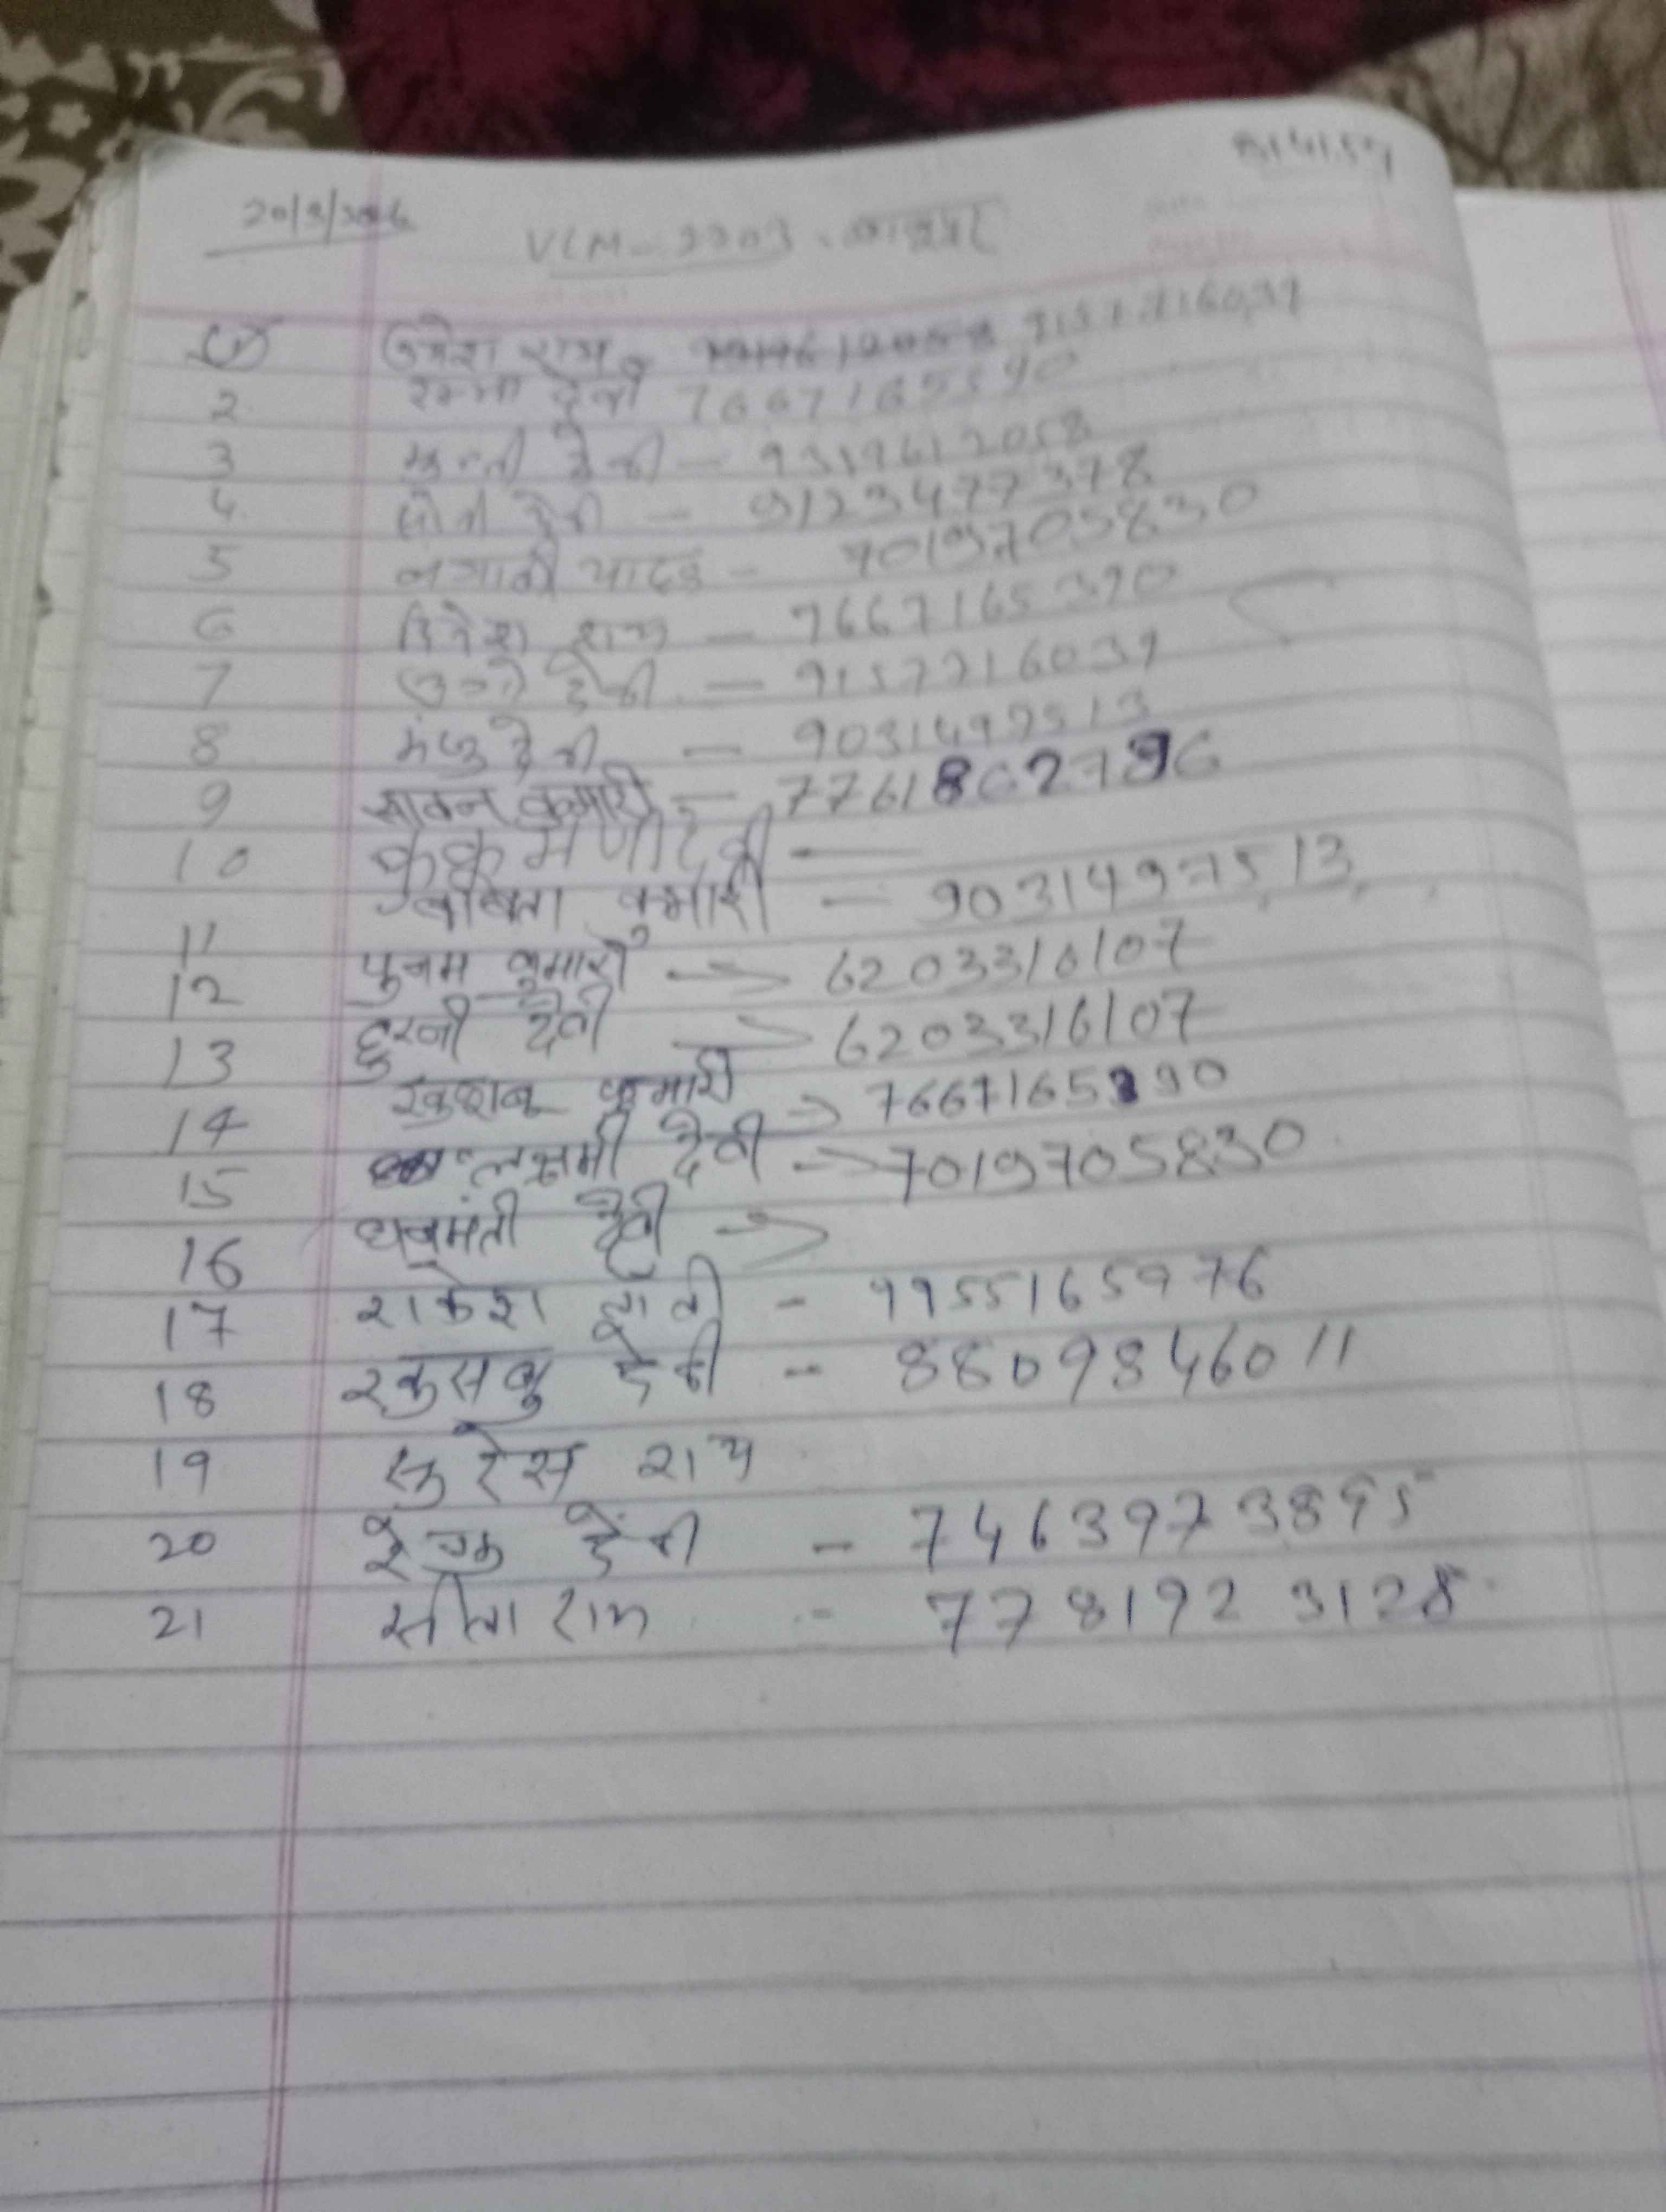 20/3/2026
VLM - 2203
1 उमेश राम 9157716039
2 रम्भा देवी 7667165390
3 कुन्ती देवी - 9359612058
4 सोनी देवी - 9123477378
5 यादव - 7019705830
6 दिनेश राम - 7667165390
7 देवी - 9157716039
8 मंजु देवी - 9031497513
9 सावन कुमारी - 7761862796
10 देवी -
11 बबिता कुमारी - 9031497513
12 पुनम कुमारी → 6203316107
13 हुरनी देवी → 6203316107
14 खुशबू कुमारी → 7667165390
15 लक्ष्मी देवी → 7019705830
16 धनमंती देवी →
17 राकेश - 9955165976
18 खुसबु देवी - 8809846011
19 सुरेस राय
20 देवी - 7463973895
21 सीता राम - 7781923128